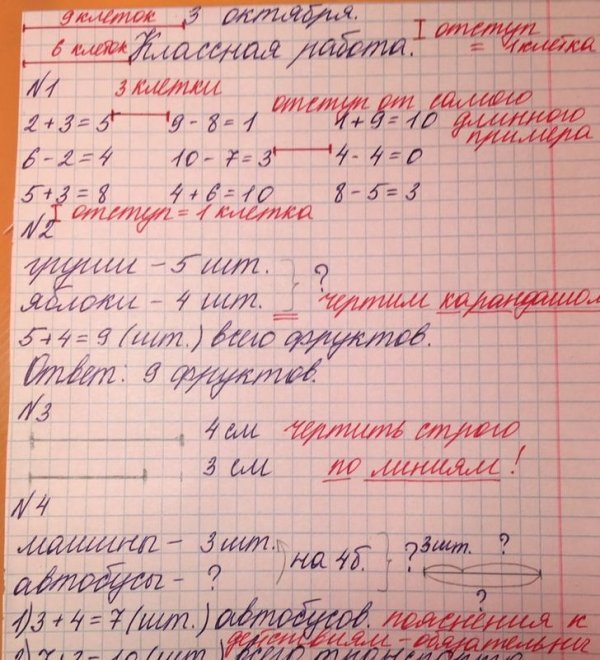 9 клеток 3 октября.
6 клеток Классная работа. отступ = 1 клетка
N1 3 клетки
отступ от самого длинного примера
2+3=5 9-8=1 1+9=10
6-2=4 10-7=3 4-4=0
5+3=8 4+6=10 8-5=3
отступ = 1 клетка
N2
груши - 5 шт. ?
яблоки - 4 шт. чертим карандашом
5+4=9 (шт.) всего фруктов.
Ответ: 9 фруктов.
N3
4 см чертить строго
3 см по линиям!
N4
машины - 3 шт. на 4б. ? 3шт. ?
автобусы - ? ?
1) 3+4=7 (шт.) автобусов. пояснения к
действиям - обязательны
2) 7+3=10 (шт.) всего